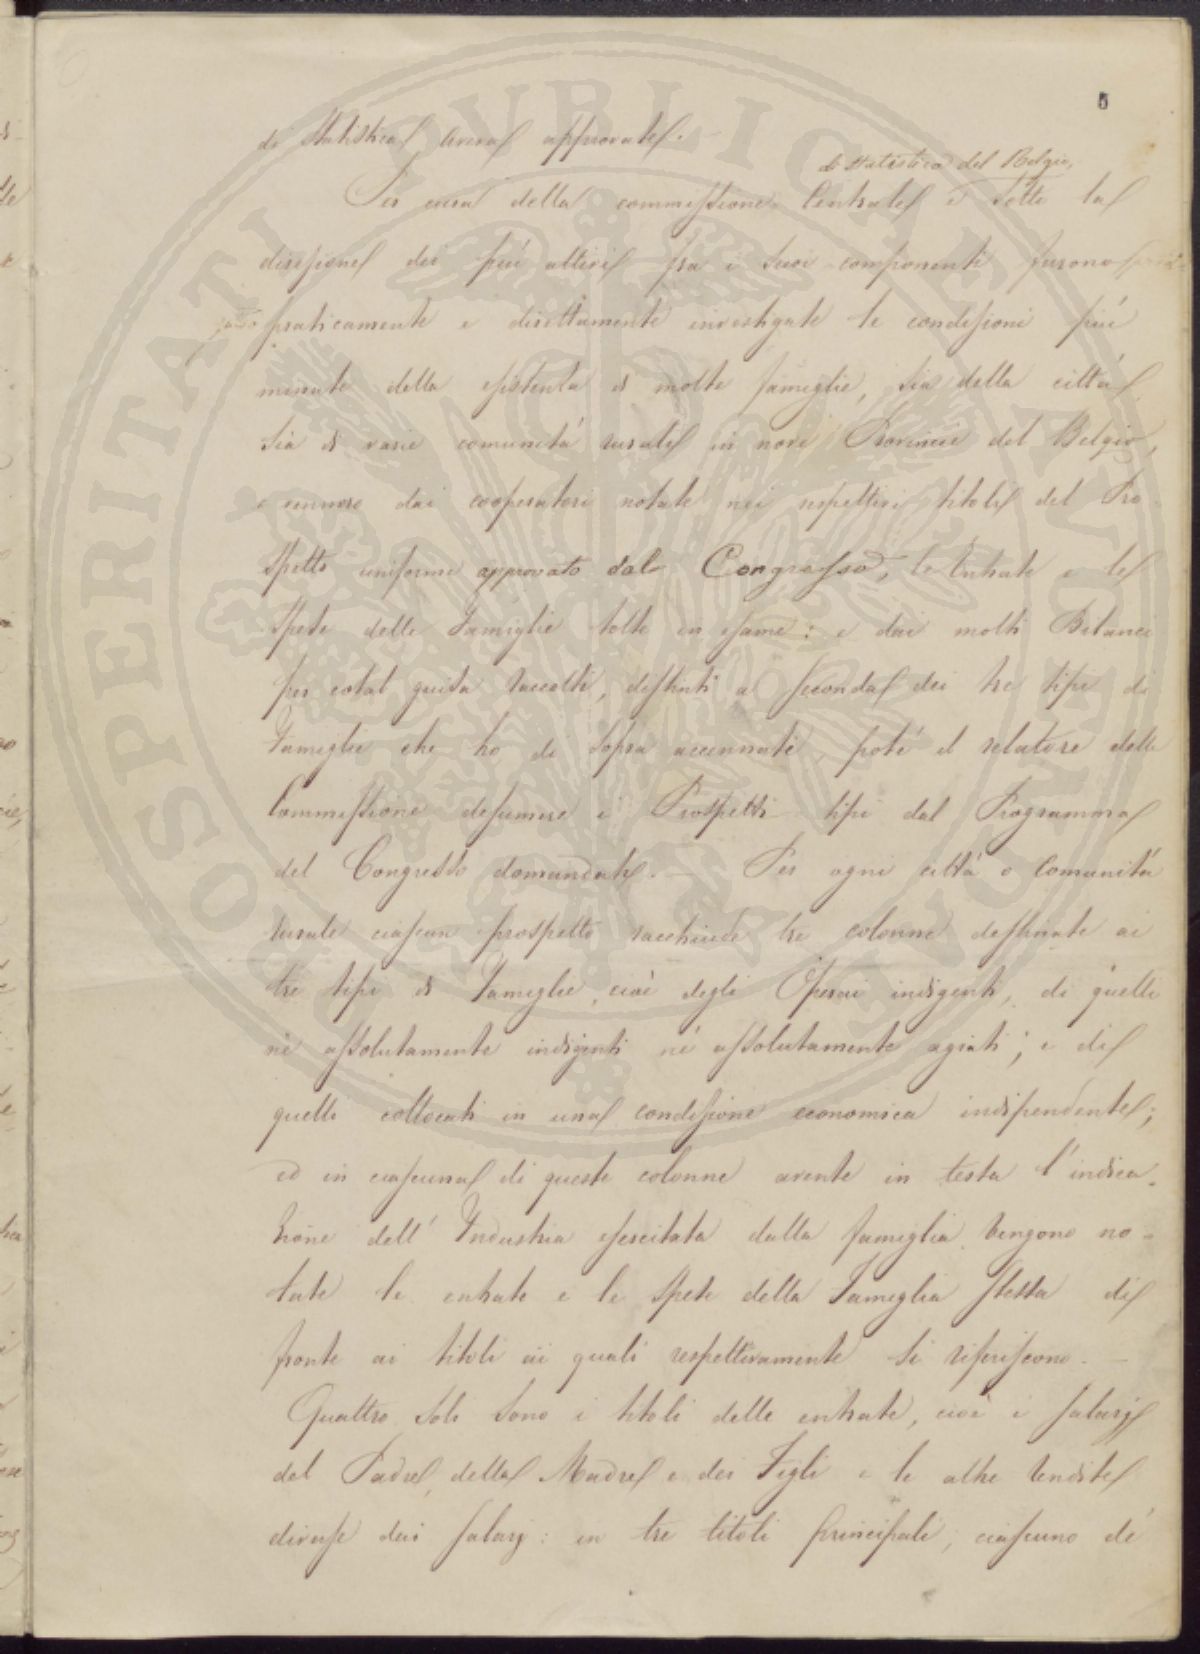 5
di Statistica aveva approvate.
di statistica del Belgio,
Per cura della commissione Centrale e sotto la
direzione dei più attivi fra i suoi componenti furono
praticamente e direttamente investigate le condizioni più
minute della esistenza di molte famiglie, sia della città
sia di varie comunità rurali in nove Provincie del Belgio,
e vennero dai cooperatori notate nei rispettivi titoli del Pro-
spetto uniforme approvato dal Congresso, le Entrate e le
Spese delle Famiglie tolte in esame: e dai molti Bilanci
per cotal guisa raccolti, distinti a seconda dei tre tipi di
Famiglie che ho di sopra accennati, poté il relatore della
Commissione desumere i Prospetti tipi dal Programma
del Congresso domandati. — Per ogni città o Comunità
rurale ciascun prospetto racchiude tre colonne destinate ai
tre tipi di Famiglie, cioè degli Operai indigenti, di quelli
nè assolutamente indigenti nè assolutamente agiati; e di
quelli collocati in una condizione economica indipendente;
ed in ciascuna di queste colonne avente in testa l'indica-
zione dell'Industria esercitata dalla famiglia vengono no-
tate le entrate e le Spese della Famiglia stessa di
fronte ai titoli ai quali respettivamente si riferiscono. —
Quattro soli sono i titoli delle entrate, cioè i Salarj
del Padre, della Madre e dei Figli e le altre rendite
diverse dai salarj: in tre titoli principali, ciascuno de'
PROSPERITATI PVBLICAE